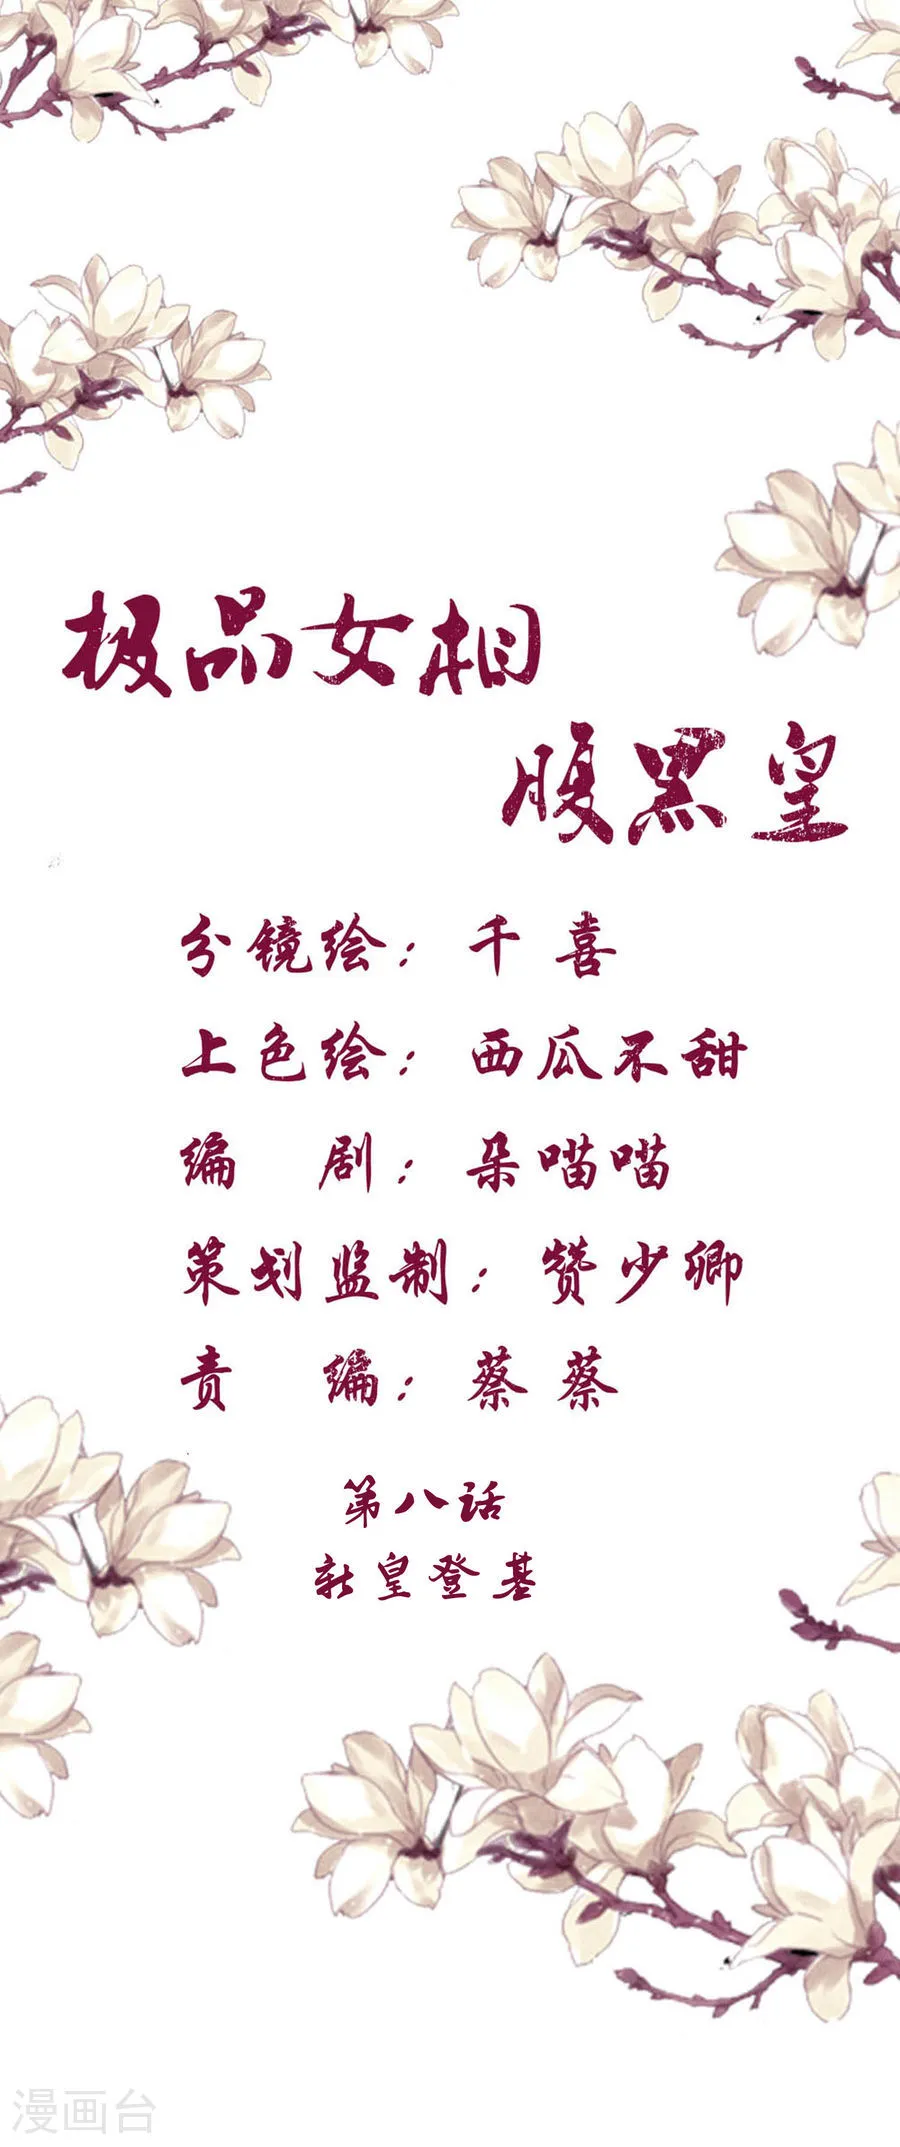 极品女相
腹黑皇
分镜绘：千喜
上色绘：西瓜不甜
编 剧：朵喵喵
策划监制：赞少卿
责 编：蔡蔡
第八话
新皇登基
漫画台